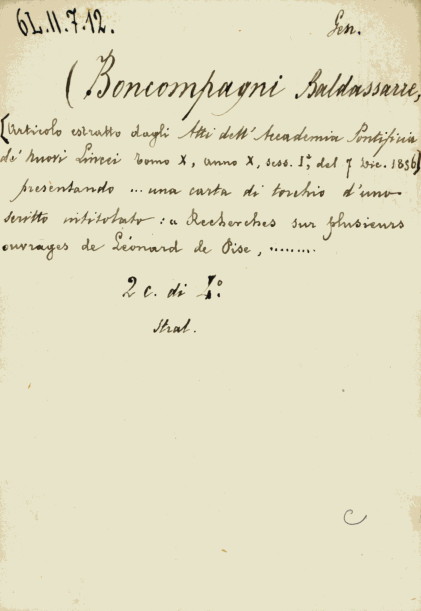 6L.11.7.12. Gen.
(Boncompagni Baldassarre,
[Articolo estratto dagli Atti dell'Accademia Pontificia
de' Nuovi Lincei Tomo X, anno X, sess. Iª, del 7 Dic. 1856)]
presentando ... una carta di torchio d'uno
scritto intitolato: « Recherches sur plusieurs
ouvrages de Léonard de Pise, ........
2 c. di 4.º
Stral.
C